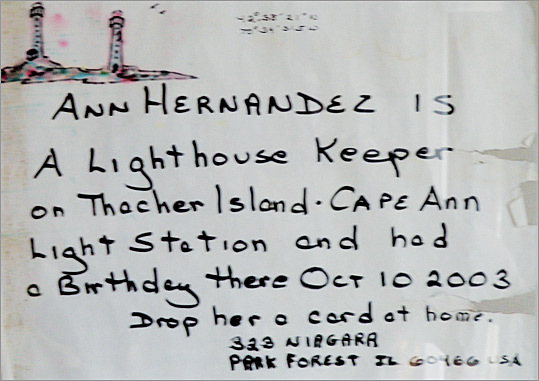 42° 38' 21" N
70° 34' 31.5" W
ANN HERNANDEZ IS
A Lighthouse Keeper
on Thacher Island · CAPE Ann
Light Station and had
a Birthday there Oct 10 2003
Drop her a card at home.
323 NIAGARA
PARK FOREST IL 60466 USA